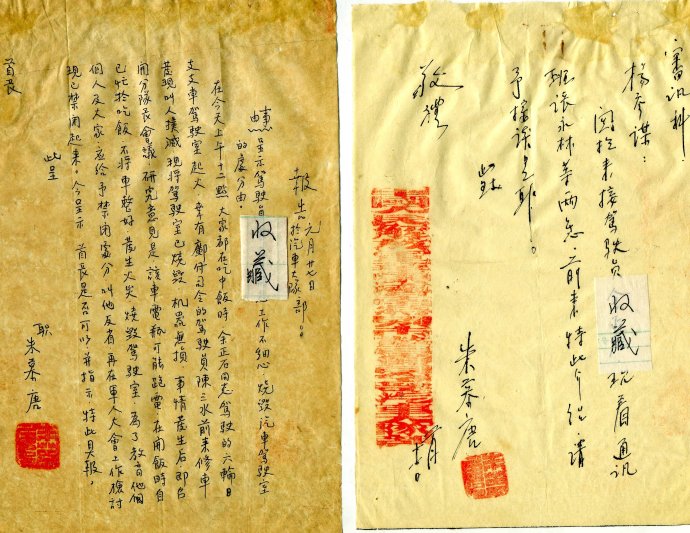 審訊科:
楊參謀:
來接駕駛員 收藏 通訊
班張永林等兩 前來特此介紹、請
予 是耶。
此致
敬禮
朱慕唐
報告 元月廿七日 於汽車大隊部
呈示駕駛員 收藏 工作不細心、燒毀汽車駕駛室
的處分由。
在今天上午十二點大家都在吃中飯時 余正石同志駕駛的六輪日
車駕駛室起火、幸有顧付司令的駕駛員陳三水前來修車
發現叫人撲滅、現將駕駛室已燒毀、機器無損、事情發生后即召
開分隊長會議、研究意見是該車電瓶可能跑電、在開飯時自
已忙於吃飯、不將車整好、發生火災燒毀駕駛室、為了教育他個
個人及大家、應給予禁閉處分、叫他反省、再在軍人大會上作檢討
現已禁閉起來。今呈示 首長是否可以並指示、特此具報。
此呈
首長
職 朱慕唐